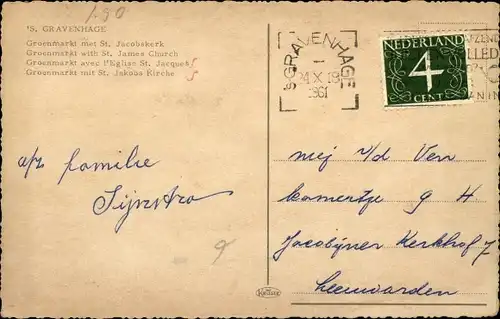 'S. GRAVENHAGE
Groenmarkt met St. Jacobskerk
Groenmarkt with St. James Church
Groenmarkt avec l'Eglise St. Jacques
Groenmarkt mit St. Jakobs Kirche
'S GRAVENHAGE
24 X 19
1961
NEDERLAND
4
CENT
a/z familie
Sijnstra
mej v/d Veen
kamertje 9 H
Jacobijner Kerkhof 7
Leeuwarden